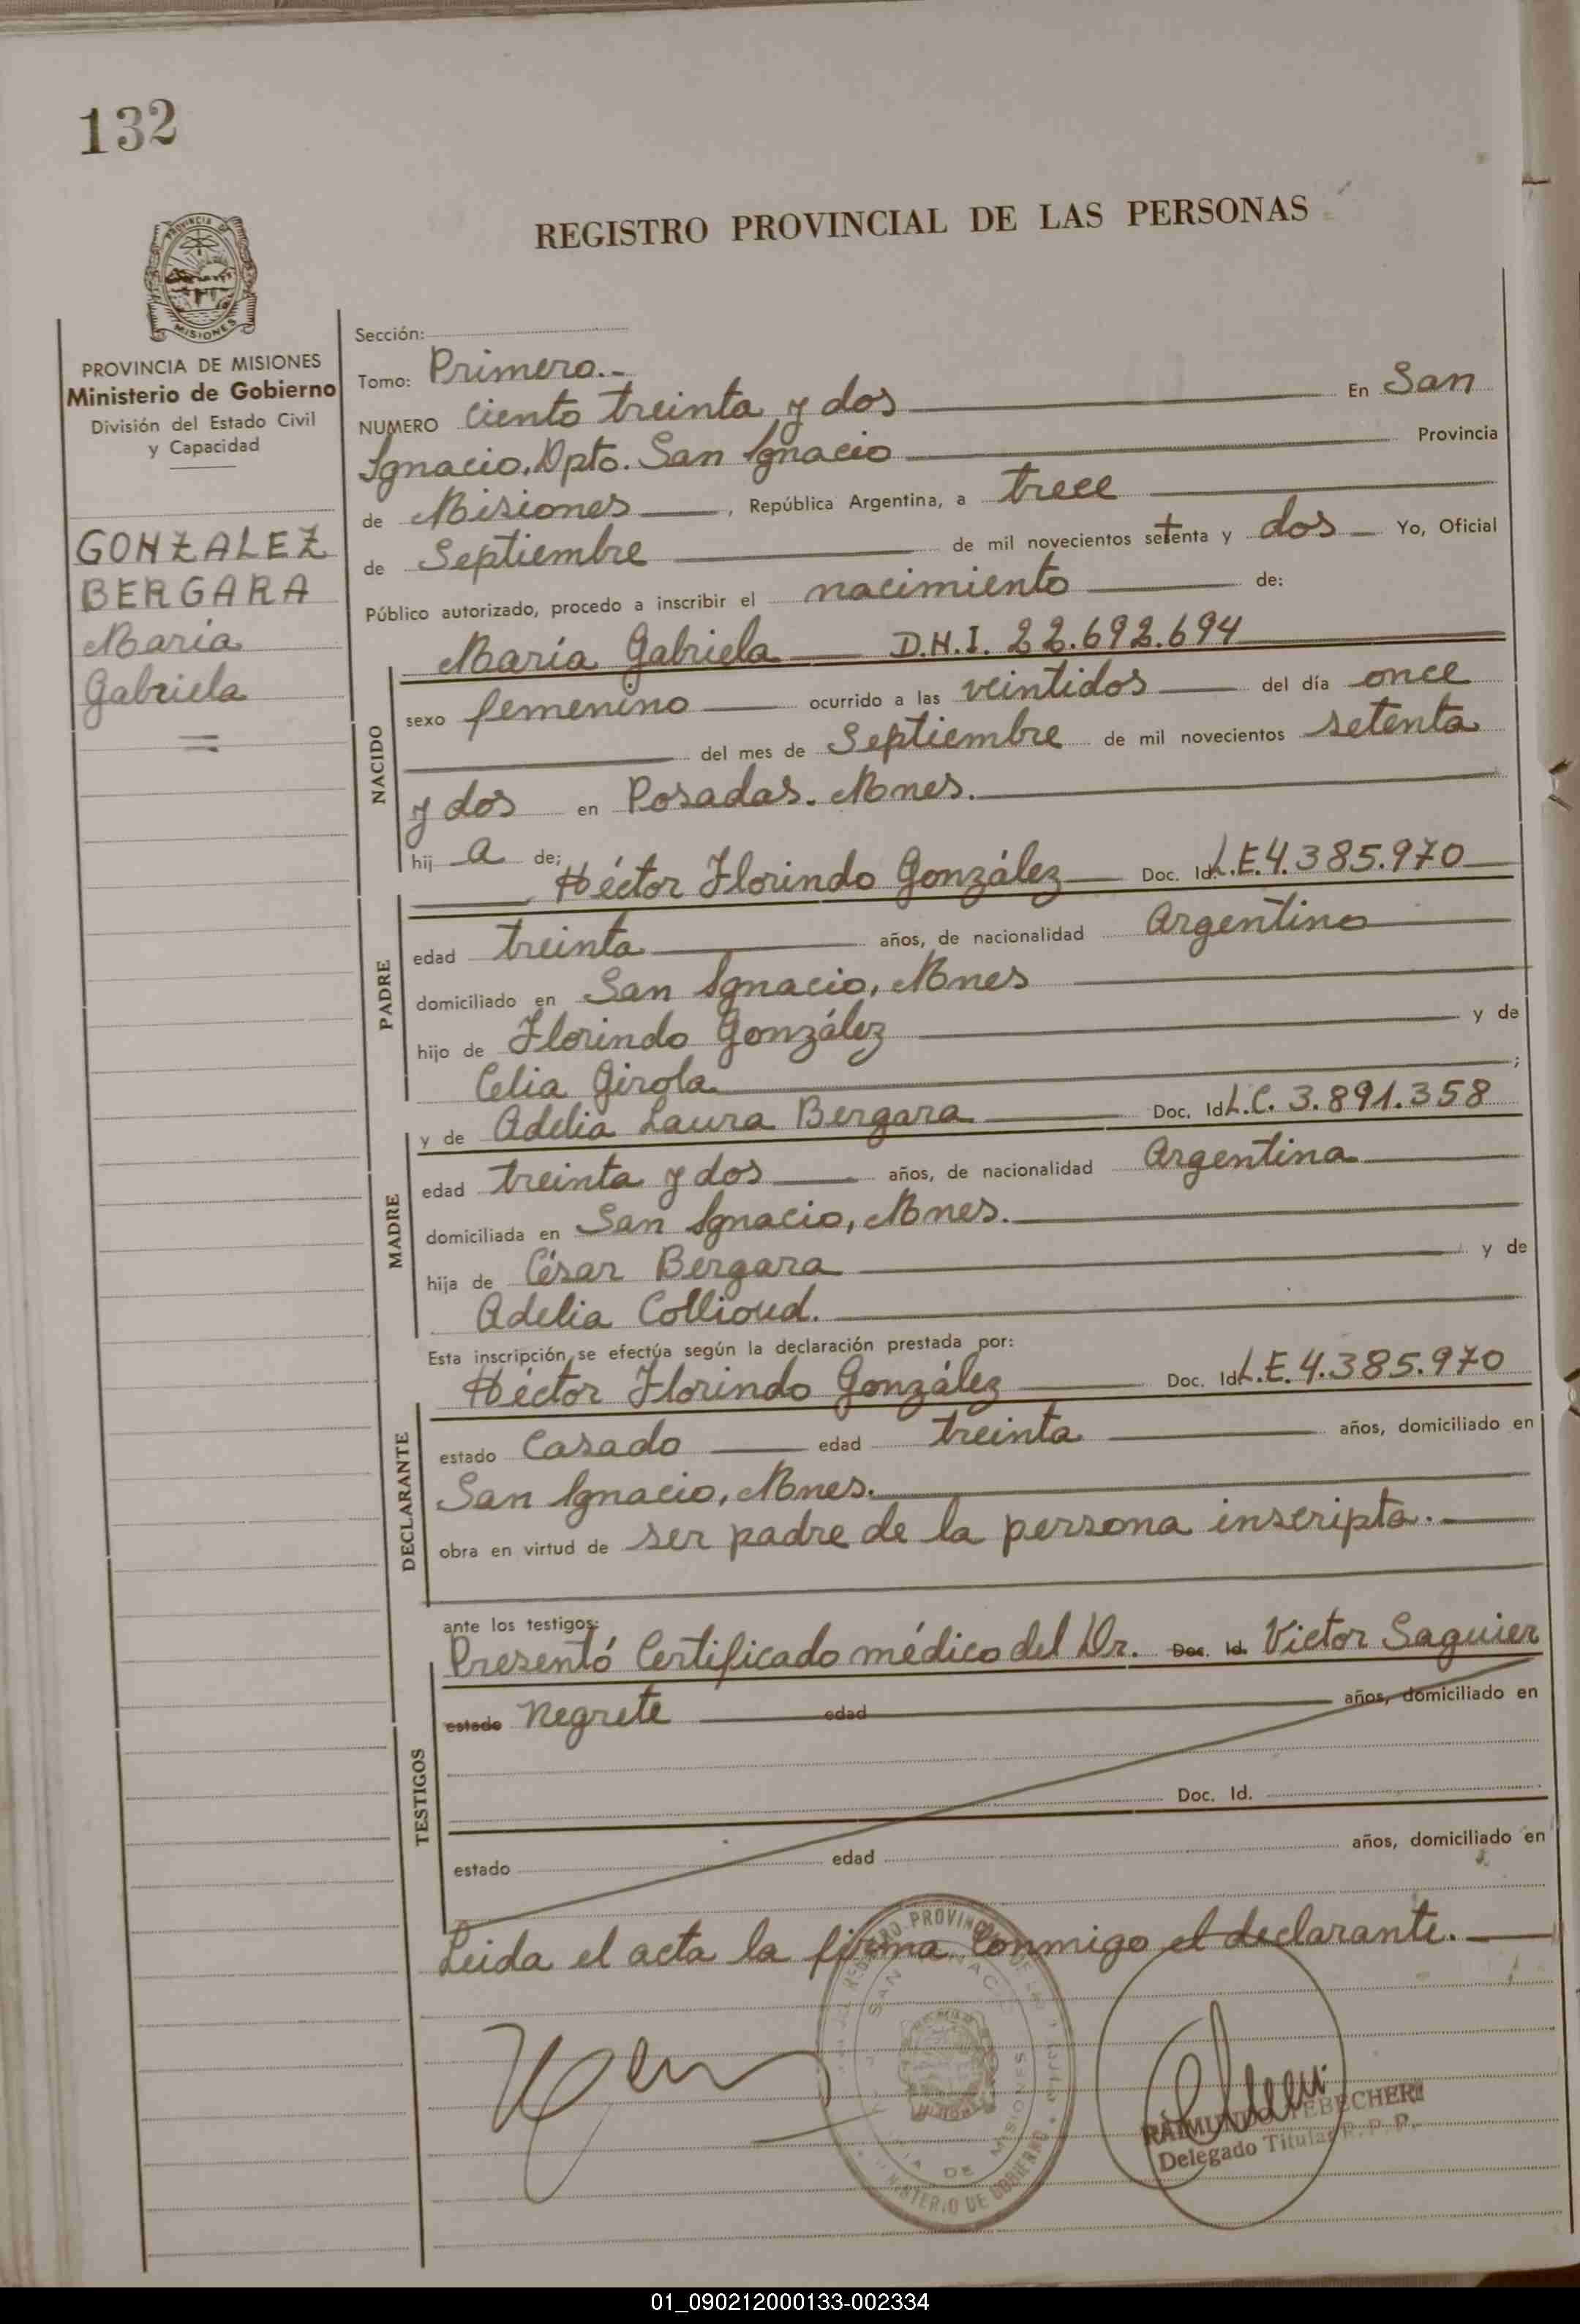 132
REGISTRO PROVINCIAL DE LAS PERSONAS
PROVINCIA DE
MISIONES
PROVINCIA DE MISIONES
Ministerio de Gobierno
División del Estado Civil
y Capacidad
GONZALEZ
BERGARA
María
Gabriela
Sección:
Tomo: Primero.-
NUMERO Ciento treinta y dos En San
Ignacio, Dpto. San Ignacio Provincia
de Misiones, República Argentina, a trece
de Septiembre de mil novecientos setenta y dos Yo, Oficial
Público autorizado, procedo a inscribir el nacimiento de:
NACIDO
María Gabriela D.N.I. 22.692.694
sexo femenino ocurrido a las veintidos del día once
del mes de Septiembre de mil novecientos setenta
y dos en Posadas. Mnes.
hij a de;
PADRE
Héctor Florindo González Doc. Id. L.E. 4.385.970
edad treinta años, de nacionalidad Argentino
domiciliado en San Ignacio, Mnes
hijo de Florindo González y de
Celia Girola. ;
MADRE
y de Adelia Laura Bergara Doc. Id L.C. 3.891.358
edad treinta y dos años, de nacionalidad Argentina
domiciliada en San Ignacio, Mnes.
hija de César Bergara y de
Adelia Collioud.
Esta inscripción se efectúa según la declaración prestada por:
DECLARANTE
Héctor Florindo González Doc. Id L.E. 4.385.970
estado Casado edad treinta años, domiciliado en
San Ignacio, Mnes.
obra en virtud de ser padre de la persona inscripta.
ante los testigos:
TESTIGOS
Presentó Certificado médico del Dr. Doc. Id. Victor Saguier
estado Negrete edad años, domiciliado en
Doc. Id.
estado edad años, domiciliado en
Leida el acta la firma Conmigo el declarante.
REGISTRO PROVINCIAL DE LAS
SAN IGNACIO
MISIONES
MINISTERIO DE GOBIERNO
RAIMUNDO TEBECHERI
Delegado Titular R. P. P.
01_090212000133-002334